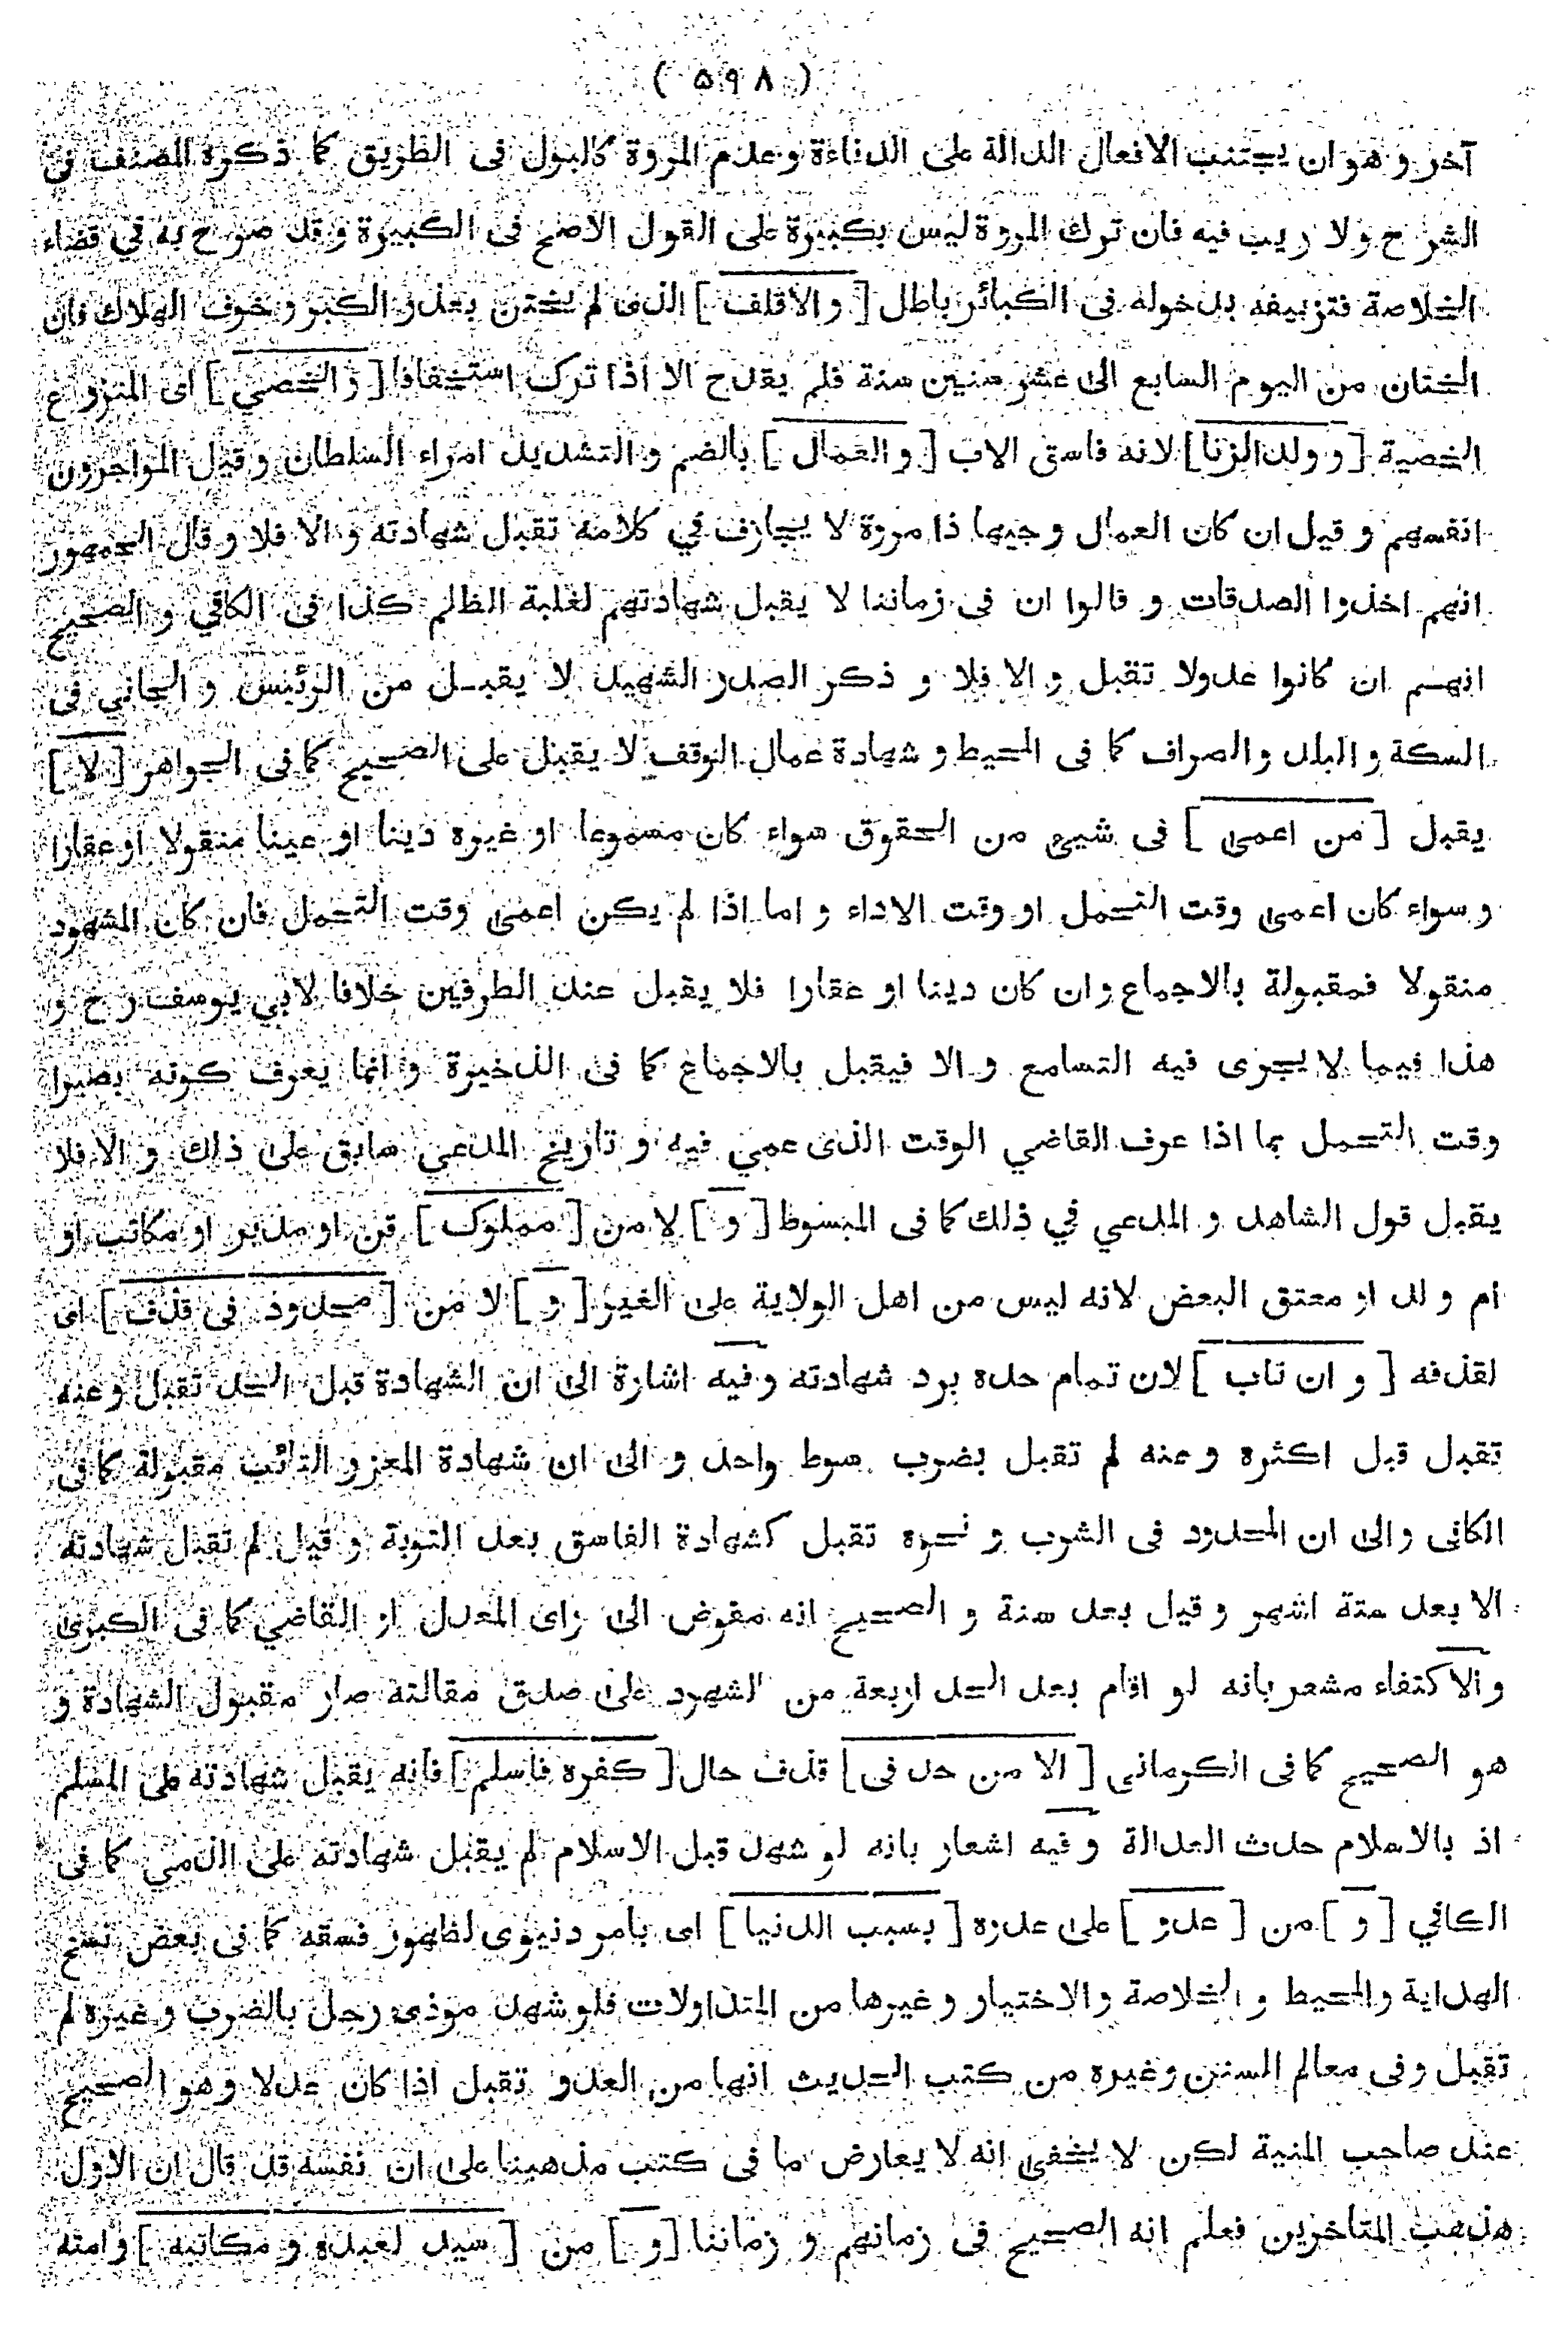 ( ۵۹۸ )
آخر و هو ان يجتنب الافعال الدالة على الدناءة و عدم المروة كالبول فى الطريق كما ذكره المصنف فى
الشرح ولا ريب فيه فان ترك المروة ليس بكبيرة على القول الاصح فى الكبيرة وقد صرح به فى قضاء
الخلاصة فتزييفه بدخوله فى الكبائر باطل [ والاقلف ] الذى لم يختن بعذر الكبر و خوف الهلاك فان
الختان من اليوم السابع الى عشر سنين سنة فلم يقدح الا اذا ترك استخفافا [ والخصي ] اى المنزوع
الخصية [ و ولد الزنا ] لانه فاسق الاب [ والعمال ] بالضم و التشديد امراء السلطان و قيل المواجرون
انفسهم و قيل ان كان العمال وجيها ذا مروة لا يجازف في كلامه تقبل شهادته و الا فلا و قال الجمهور
انهم اخذوا الصدقات و قالوا ان فى زماننا لا يقبل شهادتهم لغلبة الظلم كذا فى الكافي و الصحيح
انهم ان كانوا عدولا تقبل و الا فلا و ذكر الصدر الشهيد لا يقبل من الرئيس و الجاني فى
السكة و البلد و الصراف كما فى المحيط و شهادة عمال الوقف لا يقبل على الصحيح كما فى الجواهر [ لا ]
يقبل [ من اعمى ] فى شيئ من الحقوق سواء كان مسموعا او غيره دينا او عينا منقولا او عقارا
و سواء كان اعمى وقت التحمل او وقت الاداء و اما اذا لم يكن اعمى وقت التحمل فان كان المشهود
منقولا فمقبولة بالاجماع وان كان دينا او عقارا فلا يقبل عند الطرفين خلافا لابي يوسف رح و
هذا فيما لا يجرى فيه التسامع و الا فيقبل بالاجماع كما فى الذخيرة و انما يعرف كونه بصيرا
وقت التحمل بما اذا عرف القاضي الوقت الذى عمي فيه و تاريخ المدعي سابق على ذلك و الا فلا
يقبل قول الشاهد و المدعي في ذلك كما فى المبسوط [ و ] لا من [ مملوك ] قن او مدبر او مكاتب او
ام ولد او معتق البعض لانه ليس من اهل الولاية على الغير [ و ] لا من [ محدود فى قذف ] اى
لقذفه [ و ان تاب ] لان تمام حده برد شهادته و فيه اشارة الى ان الشهادة قبل الحد تقبل و عنه
تقبل قبل اكثره و عنه لم تقبل بضرب سوط واحد و الى ان شهادة المعزر التائب مقبولة كما فى
الكافى والى ان المحدود فى الشرب و نحوه تقبل كشهادة الفاسق بعد التوبة و قيل لم تقبل شهادته
الا بعد ستة اشهر و قيل بعد سنة و الصحيح انه مفوض الى راى المعدل او القاضي كما فى الكبرى
والاكتفاء مشعر بانه لو اقام بعد الحد اربعة من الشهود على صدق مقالته صار مقبول الشهادة و
هو الصحيح كما فى الكرمانى [ الا من حد فى ] قذف حال [ كفره فاسلم ] فانه يقبل شهادته على المسلم
اذ بالاسلام حدث العدالة و فيه اشعار بانه لو شهد قبل الاسلام لم يقبل شهادته على الذمي كما فى
الكافي [ و ] من [ عدو ] على عدوه [ بسبب الدنيا ] اى بامر دنيوى لظهور فسقه كما فى بعض نسخ
الهداية والمحيط و الخلاصة والاختيار و غيرها من المتداولات فلو شهد موذى رجل بالضرب و غيره لم
تقبل و فى معالم السنن وغيره من كتب الحديث انها من العدو تقبل اذا كان عدلا و هو الصحيح
عند صاحب المنية لكن لا يخفى انه لا يعارض ما فى كتب مذهبنا على ان نفسه قد قال ان الاول
مذهب المتاخرين فعلم انه الصحيح فى زمانهم و زماننا [ و ] من [ سيد لعبده و مكاتبه ] و امته